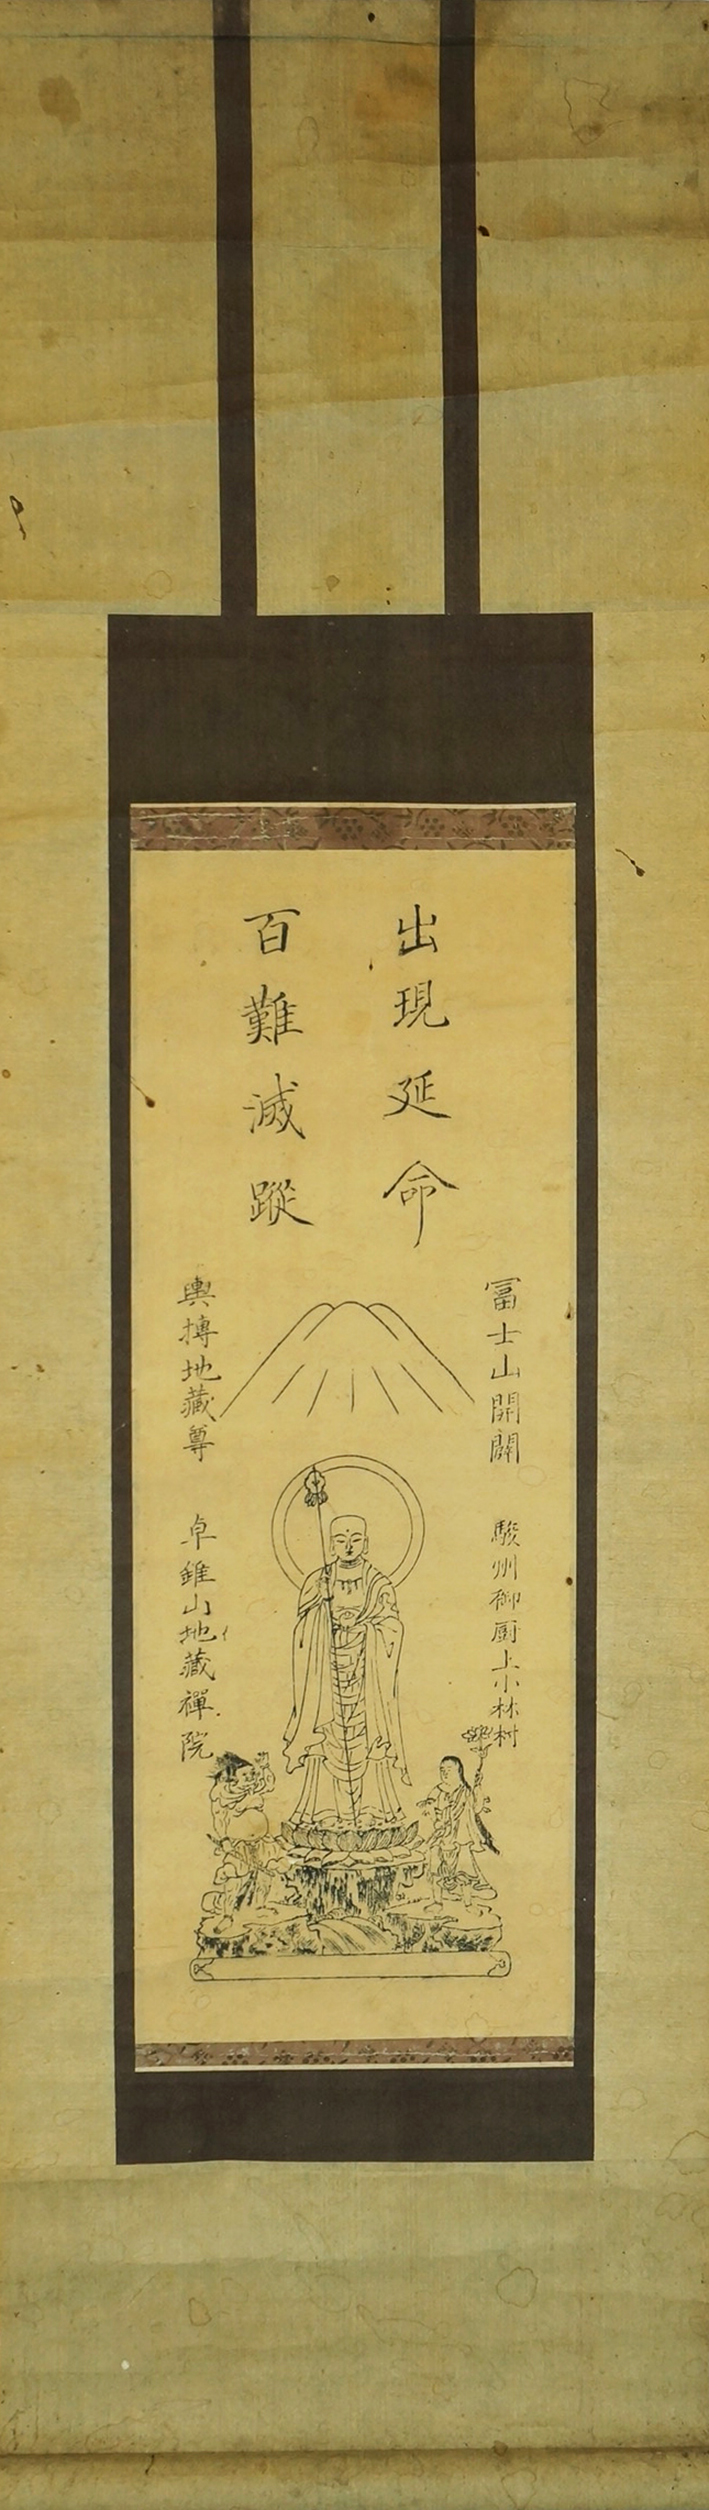 出現延命
百難滅蹤
冨士山開闢
輿摶地藏尊
駿州御厨上小林村
卓錐山地藏禪院